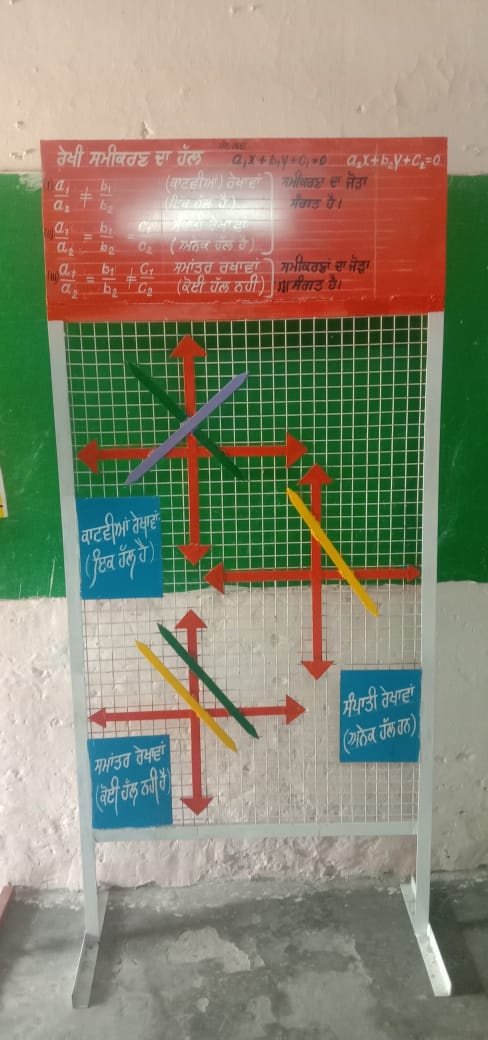 ਰੇਖੀ ਸਮੀਕਰਣ ਦਾ ਹੱਲ a₁x+b₁y+c₁=0 a₂x+b₂y+c₂=0
(i) a₁/a₂ ≠ b₁/b₂ (ਕਾਟਵੀਆਂ) ਰੇਖਾਵਾਂ ਸਮੀਕਰਣ ਦਾ ਜੋੜਾ
(ਇਕ ਹੱਲ ਹੈ) ਸੰਗਤ ਹੈ।
(ii) a₁/a₂ = b₁/b₂ = c₁/c₂ ਰੇਖਾਵਾਂ
(ਅਨੇਕ ਹੱਲ ਹੈ)
(iii) a₁/a₂ = b₁/b₂ ≠ c₁/c₂ ਸਮਾਂਤਰ ਰੇਖਾਵਾਂ ਸਮੀਕਰਣਾਂ ਦਾ ਜੋੜਾ
(ਕੋਈ ਹੱਲ ਨਹੀ) ਸੰਗਤ ਹੈ।
ਕਾਟਵੀਆਂ ਰੇਖਾਵਾਂ
(ਇਕ ਹੱਲ ਹੈ)
ਸੰਪਾਤੀ ਰੇਖਾਵਾਂ
(ਅਨੇਕ ਹੱਲ ਹਨ)
ਸਮਾਂਤਰ ਰੇਖਾਵਾਂ
(ਕੋਈ ਹੱਲ ਨਹੀ ਹੈ)